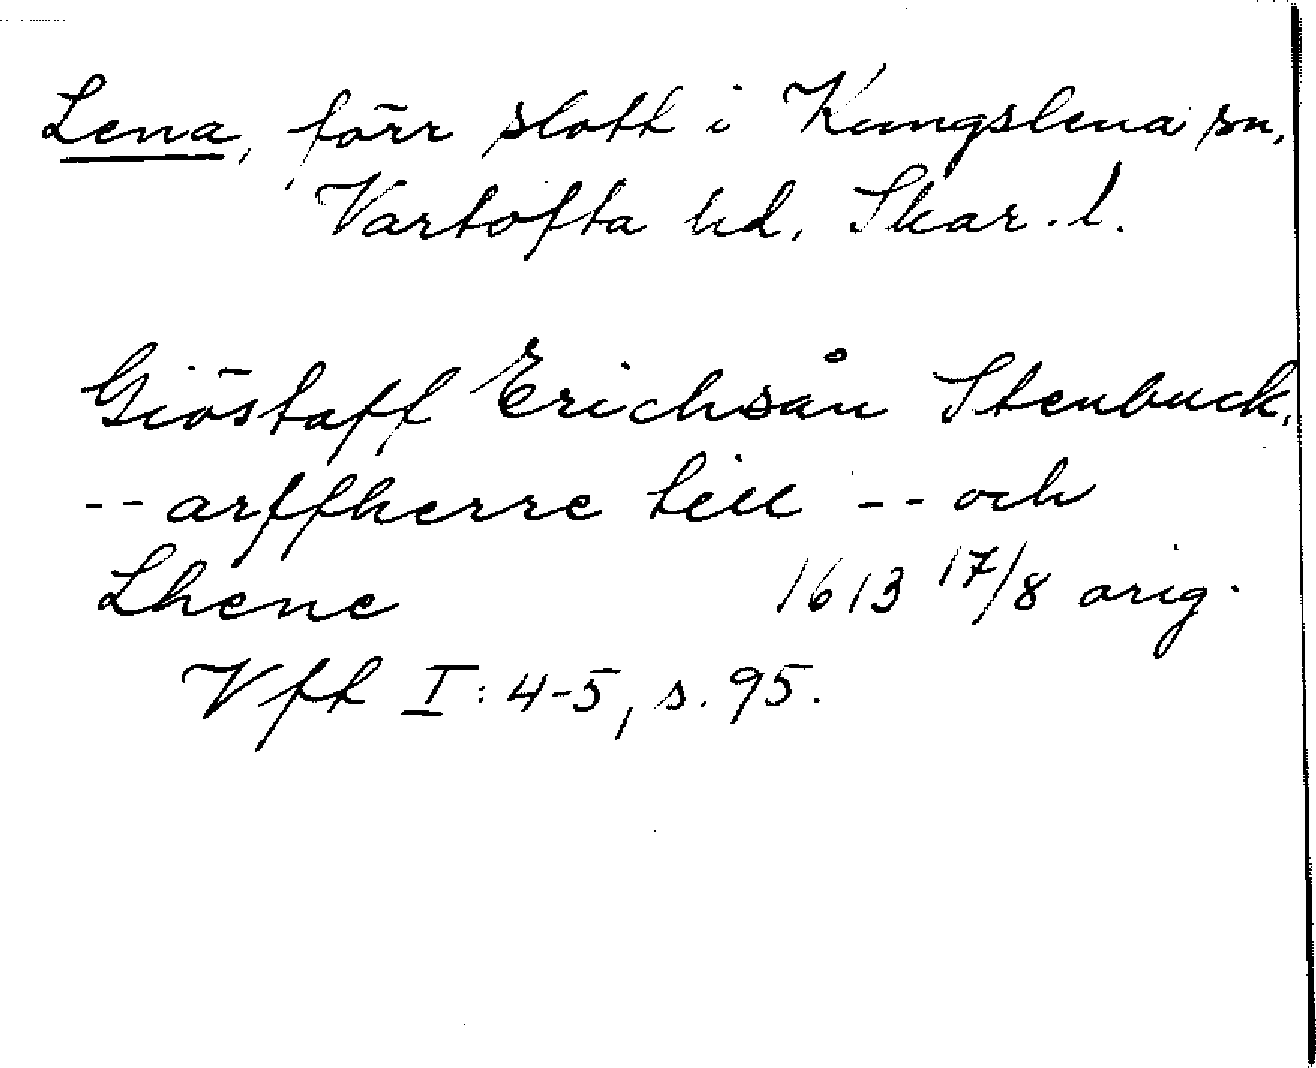 Lena, förr slott i Kungslena sn,
Vartofta hd, Skar. l.
Giöstaff Erichsån Stenbuck,
-- arffherre till -- och
Lhene 1613 17/8 orig.
Vft I: 4-5, s. 95.